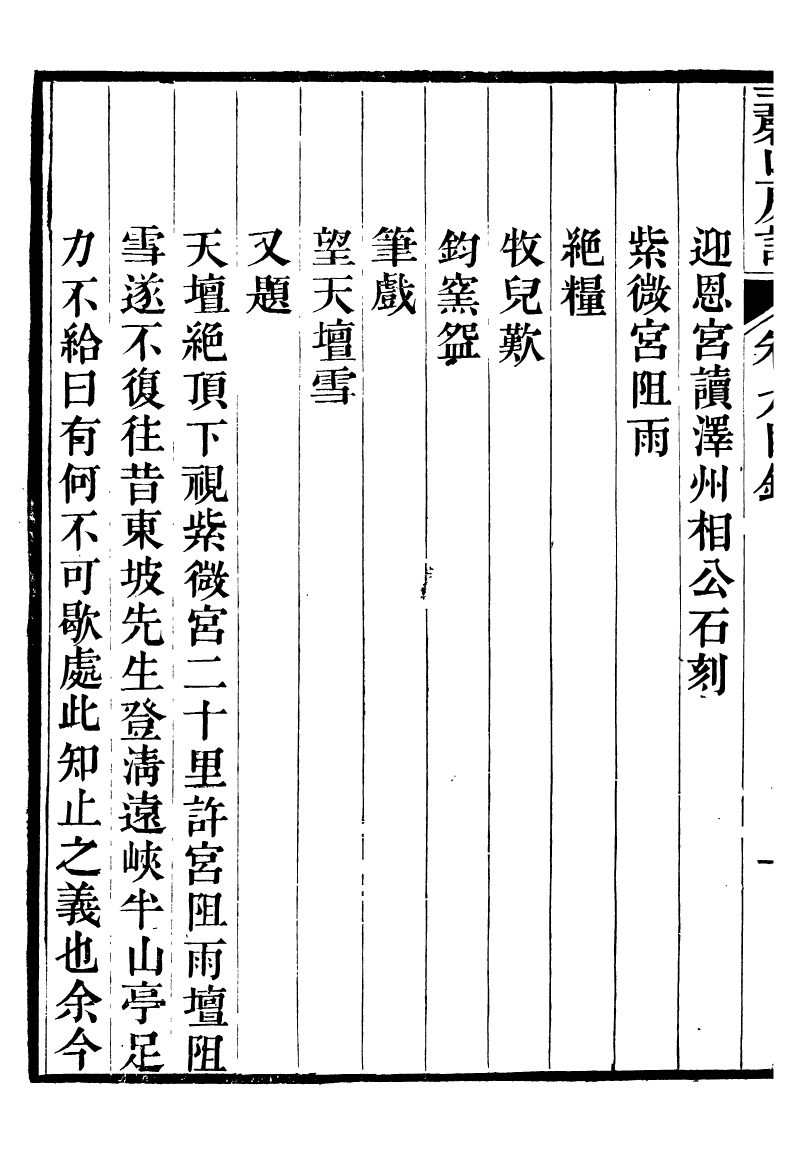 迎恩宮讀澤州相公石刻
紫微宮阻雨
絶糧
牧兒歎
鈞窯盌
筆戲
望天壇雪
又題
天壇絶頂下視紫微宮二十里許宮阻雨壇阻
雪遂不復往昔東坡先生登淸遠峽半山亭足
力不給曰有何不可歇處此知止之義也余今